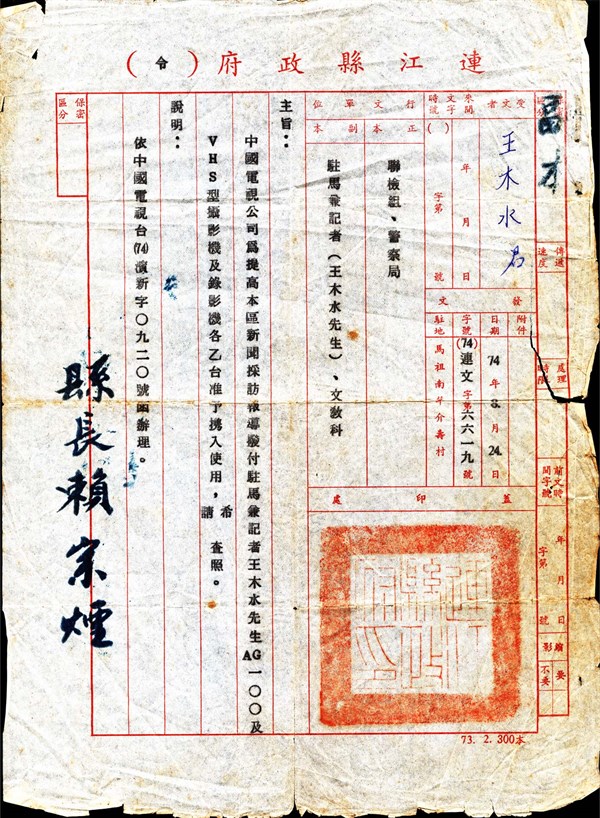 連江縣政府（令）
受文者
王木水君
來文時間字號
年 月 日
字第 號
（ ）
行文單位
正本
聯檢組、警察局
副本
駐馬兼記者（王木水先生）、文教科
發文
附件
日期
74年8月24日
字號
(74)連文字第六六一九號
駐地
馬祖南竿介壽村
蓋印處
傳遞速度
處理時限
前文時間字號
年 月 日
字第 號
影
要
不要
保密區分
主旨：
中國電視公司為提高本區新聞採訪報導撥付駐馬兼記者王木水先生AG一〇〇及
VHS型攝影機及錄影機各乙台准予攜入使用，希請 查照。
說明：
依中國電視台(74)演新字〇九二〇號函辦理。
縣長賴宗煙
73. 2. 300本